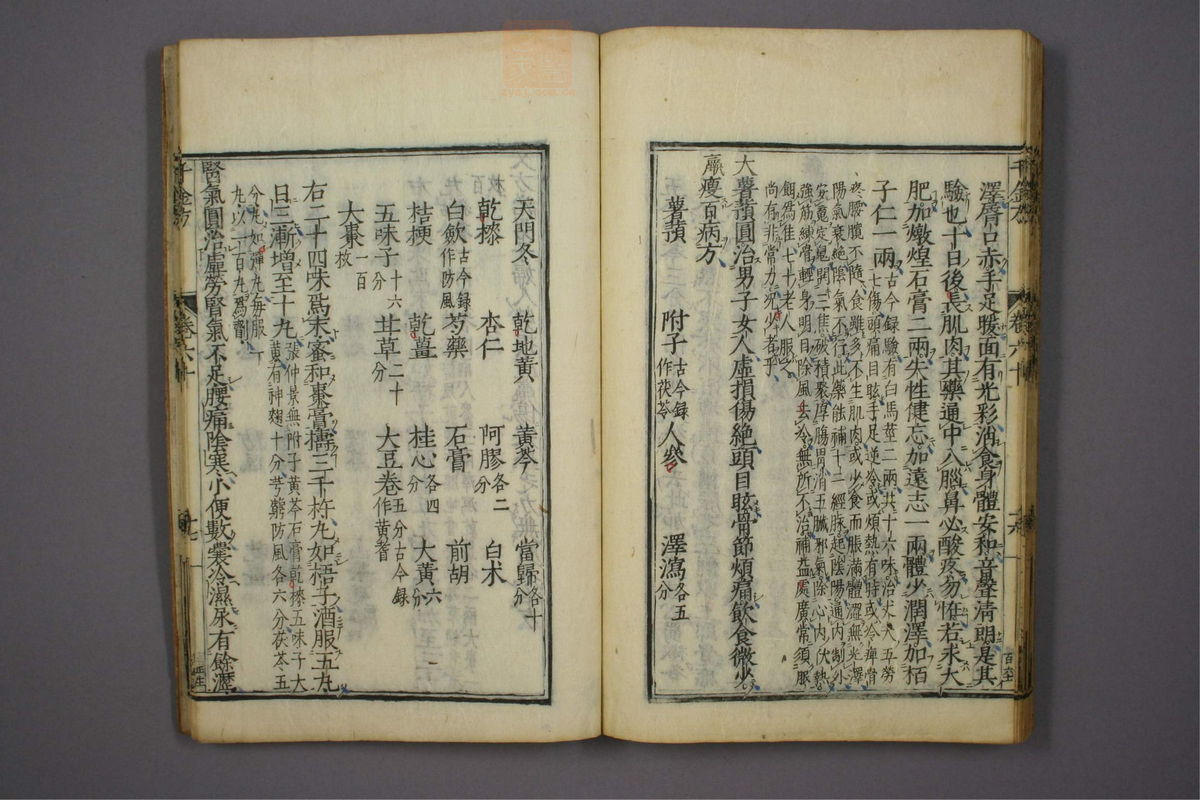 澤脣口赤手足暖面有光彩消食身體安和音聲清明是其
驗也十日後長肌肉其藥通中入腦鼻必酸疼勿怪若求大
肥加燉煌石膏二兩失性健忘加遠志一兩體少潤澤加栢
子仁一兩古今録驗有白馬莖二兩共十六味治丈夫五勞
七傷頭痛目眩手足逆冷或煩熱有時或冷痺骨
疼腰髖不隨食雖多不生肌肉或少食而脹滿體澀無光澤
陽氣衰絶陰氣不行此藥能補十二經脉起陰陽通内制外
安魂定魄開三焦破積聚厚腸胃消五臟邪氣除心内伏熱
強筋練骨輕身明目除風去冷無所不治補益處廣常須服
餌爲佳七十老人服之
尚有非常力況少者乎
大薯蕷圓治男子女人虚損傷絶頭目眩骨節煩痛飲食微少
羸瘦百病方
薯蕷 附子古今録作茯苓 人參 澤瀉各五分
天門冬 乾地黄 黄芩 當歸各十分
乾漆 杏仁 阿膠各二分 白术
白歛古今録作防風 芍藥 石膏 前胡
桔梗 乾薑 桂心各四分 大黄六分
五味子十六分 甘草二十分 大豆卷五分古今録作黄耆
大棗一百枚
右二十四味爲末蜜和棗膏擣三千杵丸如梧子酒服五丸
日三漸增至十丸張仲景無附子黄芩石膏乾漆五味子大
黄有神麹十分芎藭防風各六分茯苓五
分丸如彈丸每服一
丸以一百丸爲劑
腎氣圓治虚勞腎氣不足腰痛陰寒小便數囊冷濕尿有餘瀝
千金方
卷六十
十七